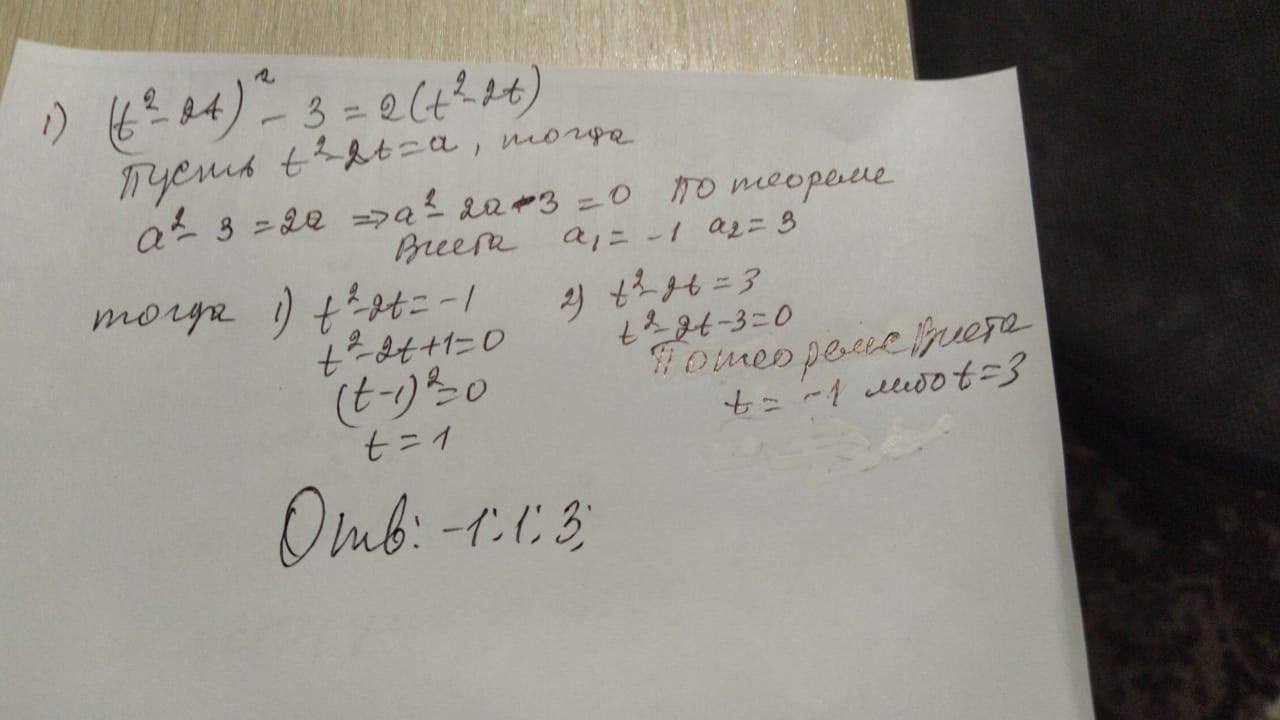 1) (t²-2t)² - 3 = 2(t²-2t)
Пусть t²-2t=a, тогда
a²-3=2a ⇒ a²-2a-3=0 По теореме
Виета a₁=-1 a₂=3
тогда 1) t²-2t=-1
t²-2t+1=0
(t-1)²=0
t=1
2) t²-2t=3
t²-2t-3=0
По теореме Виета
t=-1 либо t=3
Отв: -1; 1; 3;